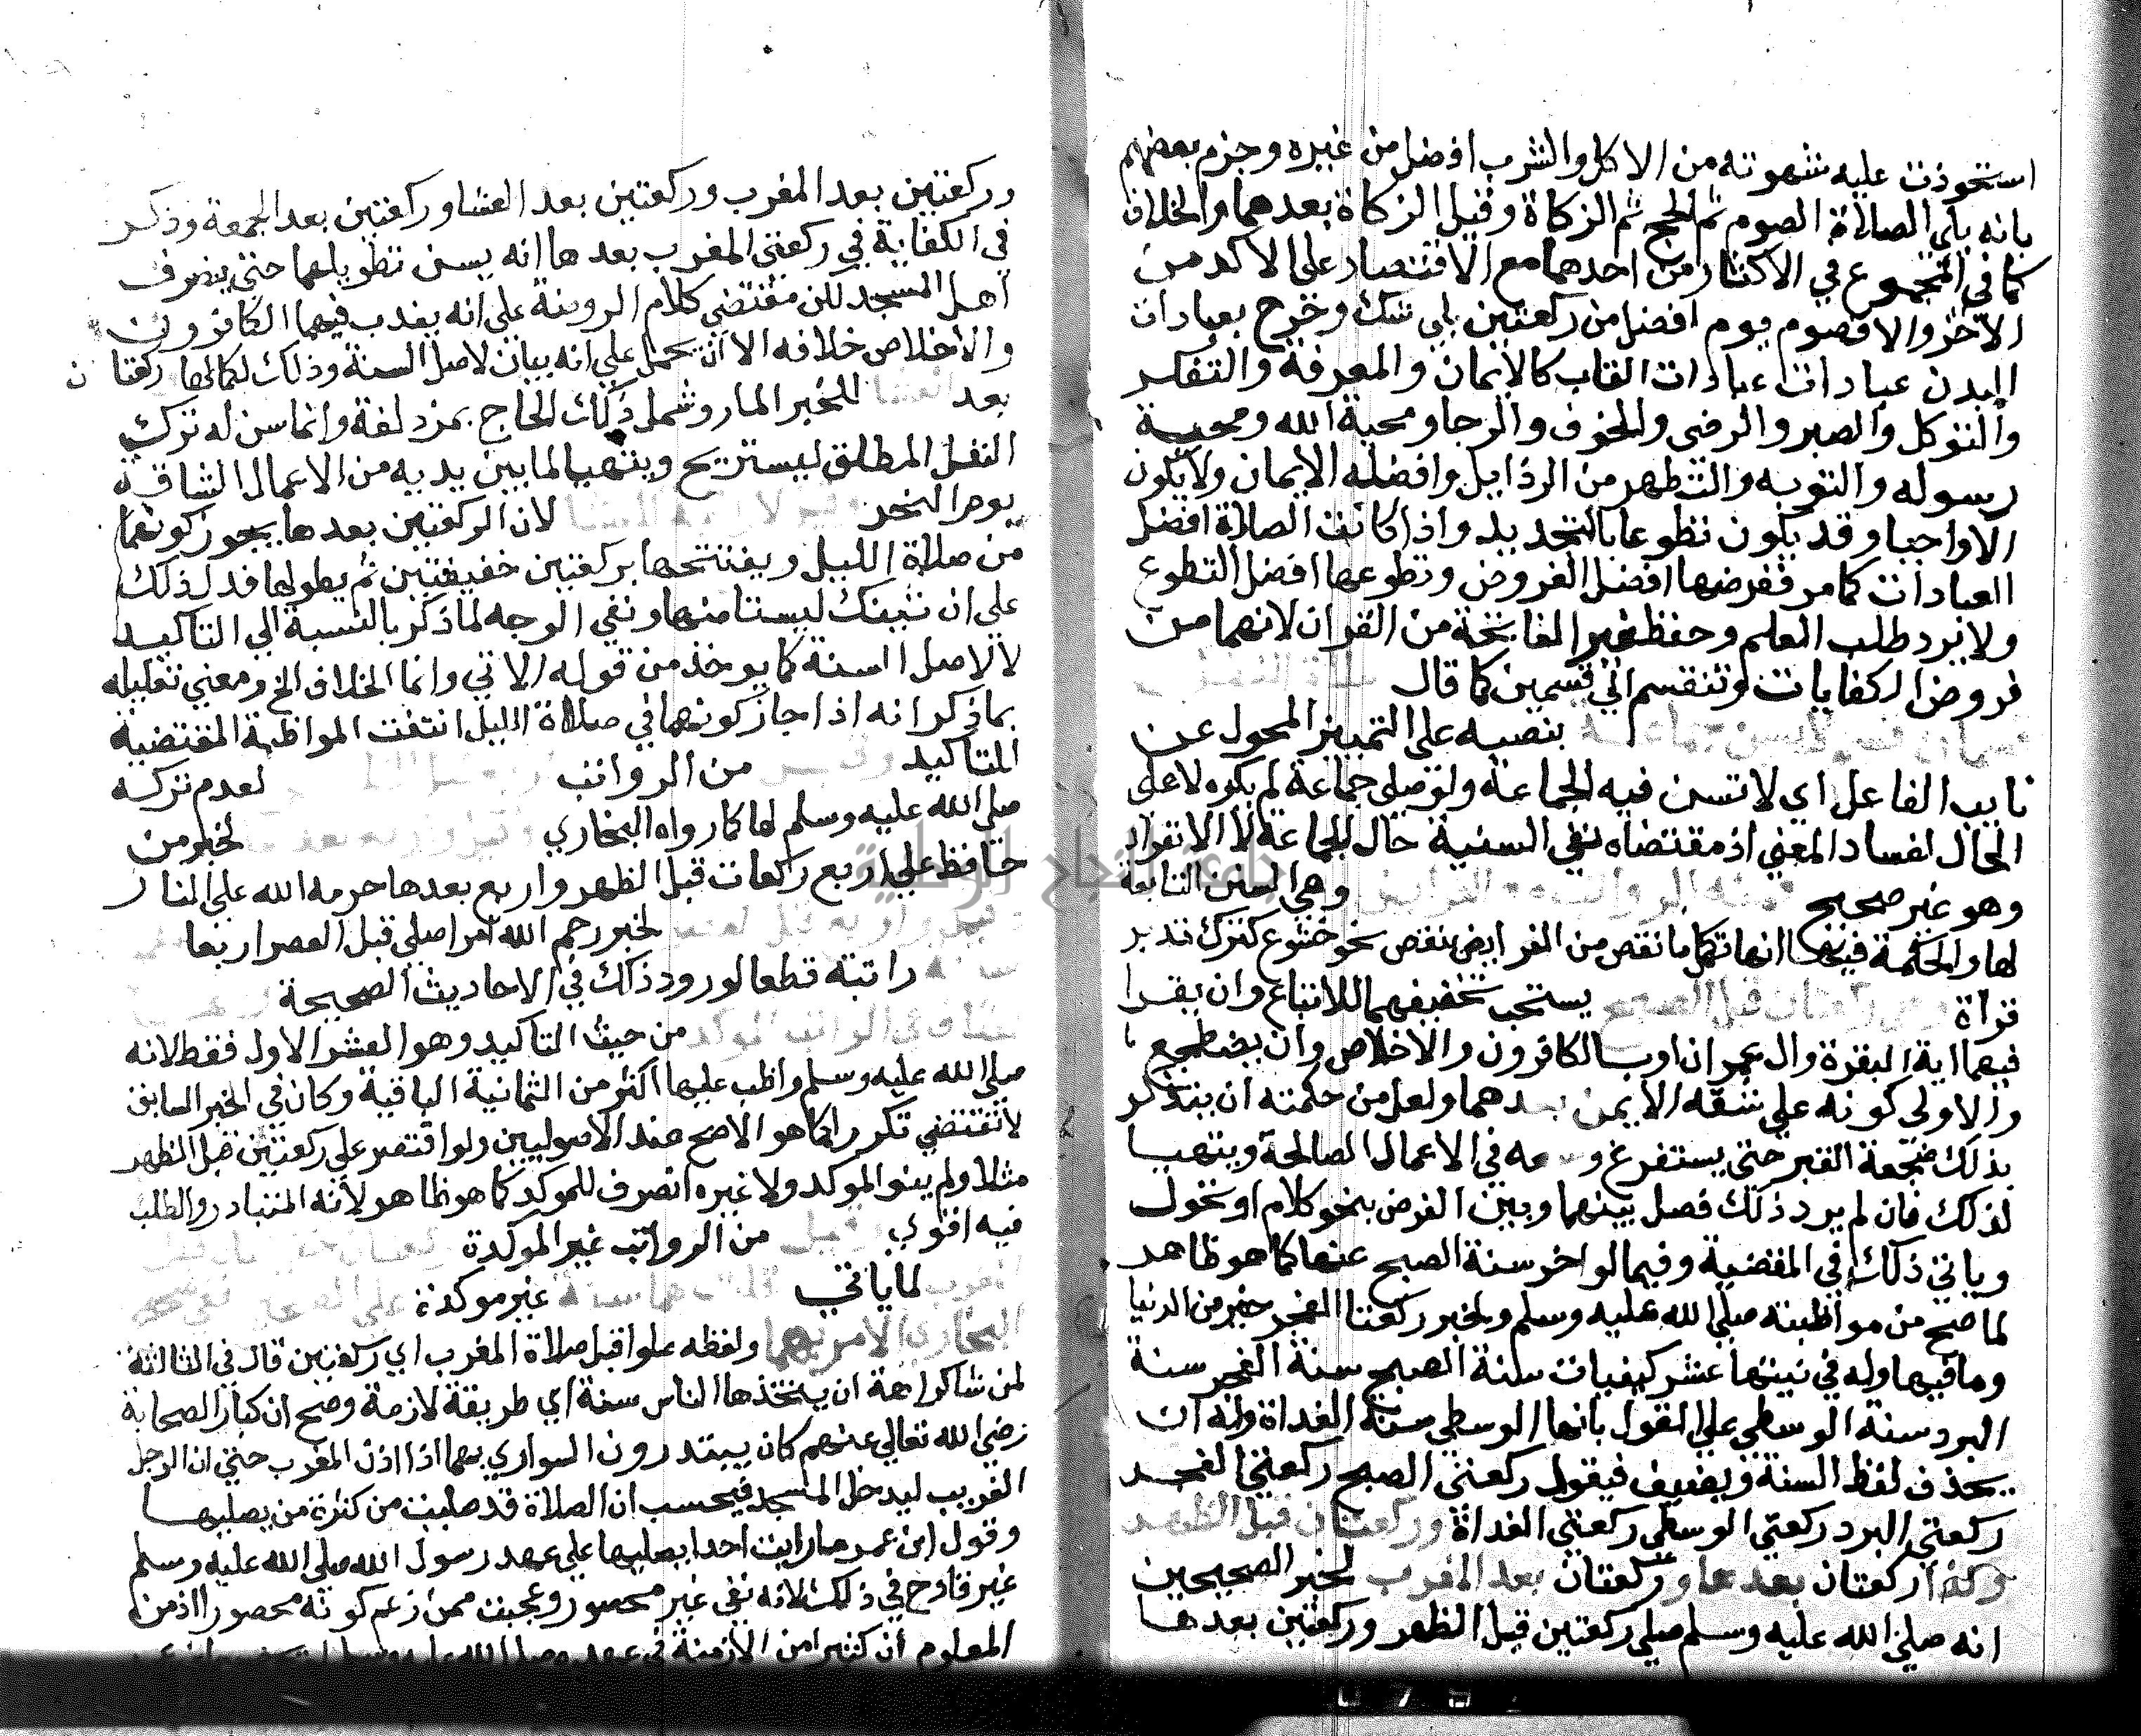 استحوذت عليه شهوته من الاكل والشرب افضل من غيره وجزم بعضهم
بانه يلي الصلاة الصوم ثم الحج ثم الزكاة وقيل الزكاة بعدهما والخلاف
كما في المجموع في الاكثار من احدهما مع الاقتصار على الاكد من
الاخر والا فصوم يوم افضل من ركعتين بلى شك وخرج بعبادات
البدن عبادات عبادات القلب كالايمان والمعرفة والتفكر
والتوكل والصبر والرضى والخوف والرجا ومحبة الله ومحبة
رسوله والتوبه والتطهر من الرذايل وافضله الايمان ولا يكون
الا واجبا وقد يكون تطوعا بالتجديد واذا كانت الصلاة افضل
العبادات كما مر ففرضها افضل الفروض وتطوعها افضل التطوع
ولا يرد طلب العلم وحفظ غير الفاتحة من القران لانهما من
فروض الكفايات وتنقسم الي قسمين كما قال
بنصبه على التمييز المحول عن
نايب الفاعل اي لا تسن فيه الجماعة ولو صلى جماعة لم يكره لا على
الحال لفساد المعني اذ مقتضاه نفي السنية حال الجماعة لا الانفراد
وهو غير صحيح وهي السنن التابعة
لها والحكمة فيها انها تكمل ما نقص من الفرايض بنقص نحو خشوع كترك تدبر
قراة يستحب تخفيفهما للاتباع وان يقرا
فيهما اية البقرة وال عمران او بالكافرون والاخلاص وان يضطجع
والاولى كونه على شقه الايمن بعدهما ولعل من حكمته ان يتذكر
بذلك ضجعة القبر حتى يستفرغ وسعه في الاعمال الصالحة ويتهيا
لذلك فان لم يرد ذلك فصل بينهما وبين الفرض بنحو كلام او تحول
وياتي ذلك في المقضية وفيما لو اخر سنة الصبح عنها كما هو ظاهر
لما صح من مواظبته صلى الله عليه وسلم ولخبر ركعتا الفجر خير من الدنيا
وما فيها وله في نيتها عشر كيفيات سنة الصبح سنة الفجر سنة
البرد سنة الوسطي على القول بانها الوسطي سنة الغداة وله ان
يحذف لفظ السنة ويضيف فيقول ركعتي الصبح ركعتي الفجر
ركعتي البرد ركعتي الوسطي ركعتي الغداة وركعتان قبل الظهر
وكذا ركعتان بعدها وركعتان بعد المغرب لخبر الصحيحين
انه صلى الله عليه وسلم صلي ركعتين قبل الظهر وركعتين بعدها
وركعتين بعد المغرب وركعتين بعد العشا وركعتين بعد الجمعة وذكر
في الكفاية في ركعتي المغرب بعدها انه يسن تطويلهما حتى ينصرف
اهل المسجد لكن مقتضي كلام الروضة على انه يندب فيهما الكافرون
والاخلاص خلافه الا ان يحمل على انه بيان لاصل السنة وذلك لكمالها ركعتان
بعد للخبر المار وشمل ذلك الحاج بمزدلفة وانما سن له ترك
النفل المطلق ليستريح ويتهيا لما بين يديه من الاعمال الشاقة
يوم النحر لان الركعتين بعدها يجوز كونهما
من صلاة الليل ويفتتحها بركعتين خفيفتين ثم يطولهما فدل ذلك
على ان تينك ليستا منها ونفي الوجه لما ذكر بالنسبة الي التاكيد
لا لاصل السنة كما يوخذ من قوله الاتي وانما الخلاف الخ ومعني تعليله
بما ذكر انه اذا جاز كونهما في صلاة الليل انتفت المواظبة المقتضية
للتاكيد من الرواتب لعدم تركه
صلى الله عليه وسلم لها كما رواه البخاري لخبر من
حافظ على اربع ركعات قبل الظهر واربع بعدها حرمه الله على النار
لخبر رحم الله امرا صلى قبل العصر اربعا
راتبة قطعا لورود ذلك في الاحاديث الصحيحة
من حيث التاكيد وهو العشر الاول فقط لانه
صلى الله عليه وسلم واظب عليها اكثر من الثمانية الباقية وكان في الخبر السابق
لا تقتضي تكررا كما هو الاصح عند الاصوليين ولو اقتصر على ركعتين قبل الظهر
مثلا ولم ينو الموكد ولا غيره انصرف للموكد كما هو ظاهر لانه المتبادر والطلب
فيه اقوي وقيل من الرواتب غير الموكدة
لما ياتي غير موكدة
البخاري الامر بهما ولفظه صلوا قبل صلاة المغرب اي ركعتين قال في الثالثة
لمن شا كراهة ان يتخذها الناس سنة اي طريقة لازمة وصح ان كبار الصحابة
رضي الله تعالى عنهم كان يبتدرون السواري بهما اذا اذن المغرب حتى ان الرجل
الغريب ليدخل المسجد فيحسب ان الصلاة قد صليت من كثرة من يصليها
وقول ابن عمر ما رايت احدا يصليها على عهد رسول الله صلى الله عليه وسلم
غير قادح في ذلك لانه نفي غير محصور وعجيب ممن زعم كونه محصورا اذ من
المعلوم ان كثيرا من الازمنة في عهده صلى الله عليه وسلم